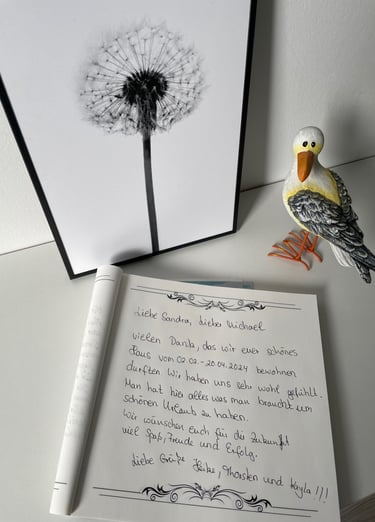 Liebe Sandra, Lieber Michael
vielen Dank, das wir euer schönes
Haus vom 02.02.-20.04.2024 bewohnen
durften. Wir haben uns sehr wohl gefühlt.
Man hat hier alles was man braucht um
schönen Urlaub zu haben.
Wir wünschen euch für die Zukunft
viel Spaß, Freude und Erfolg.
Liebe Grüße Heike, Thorsten und Kayla !!!